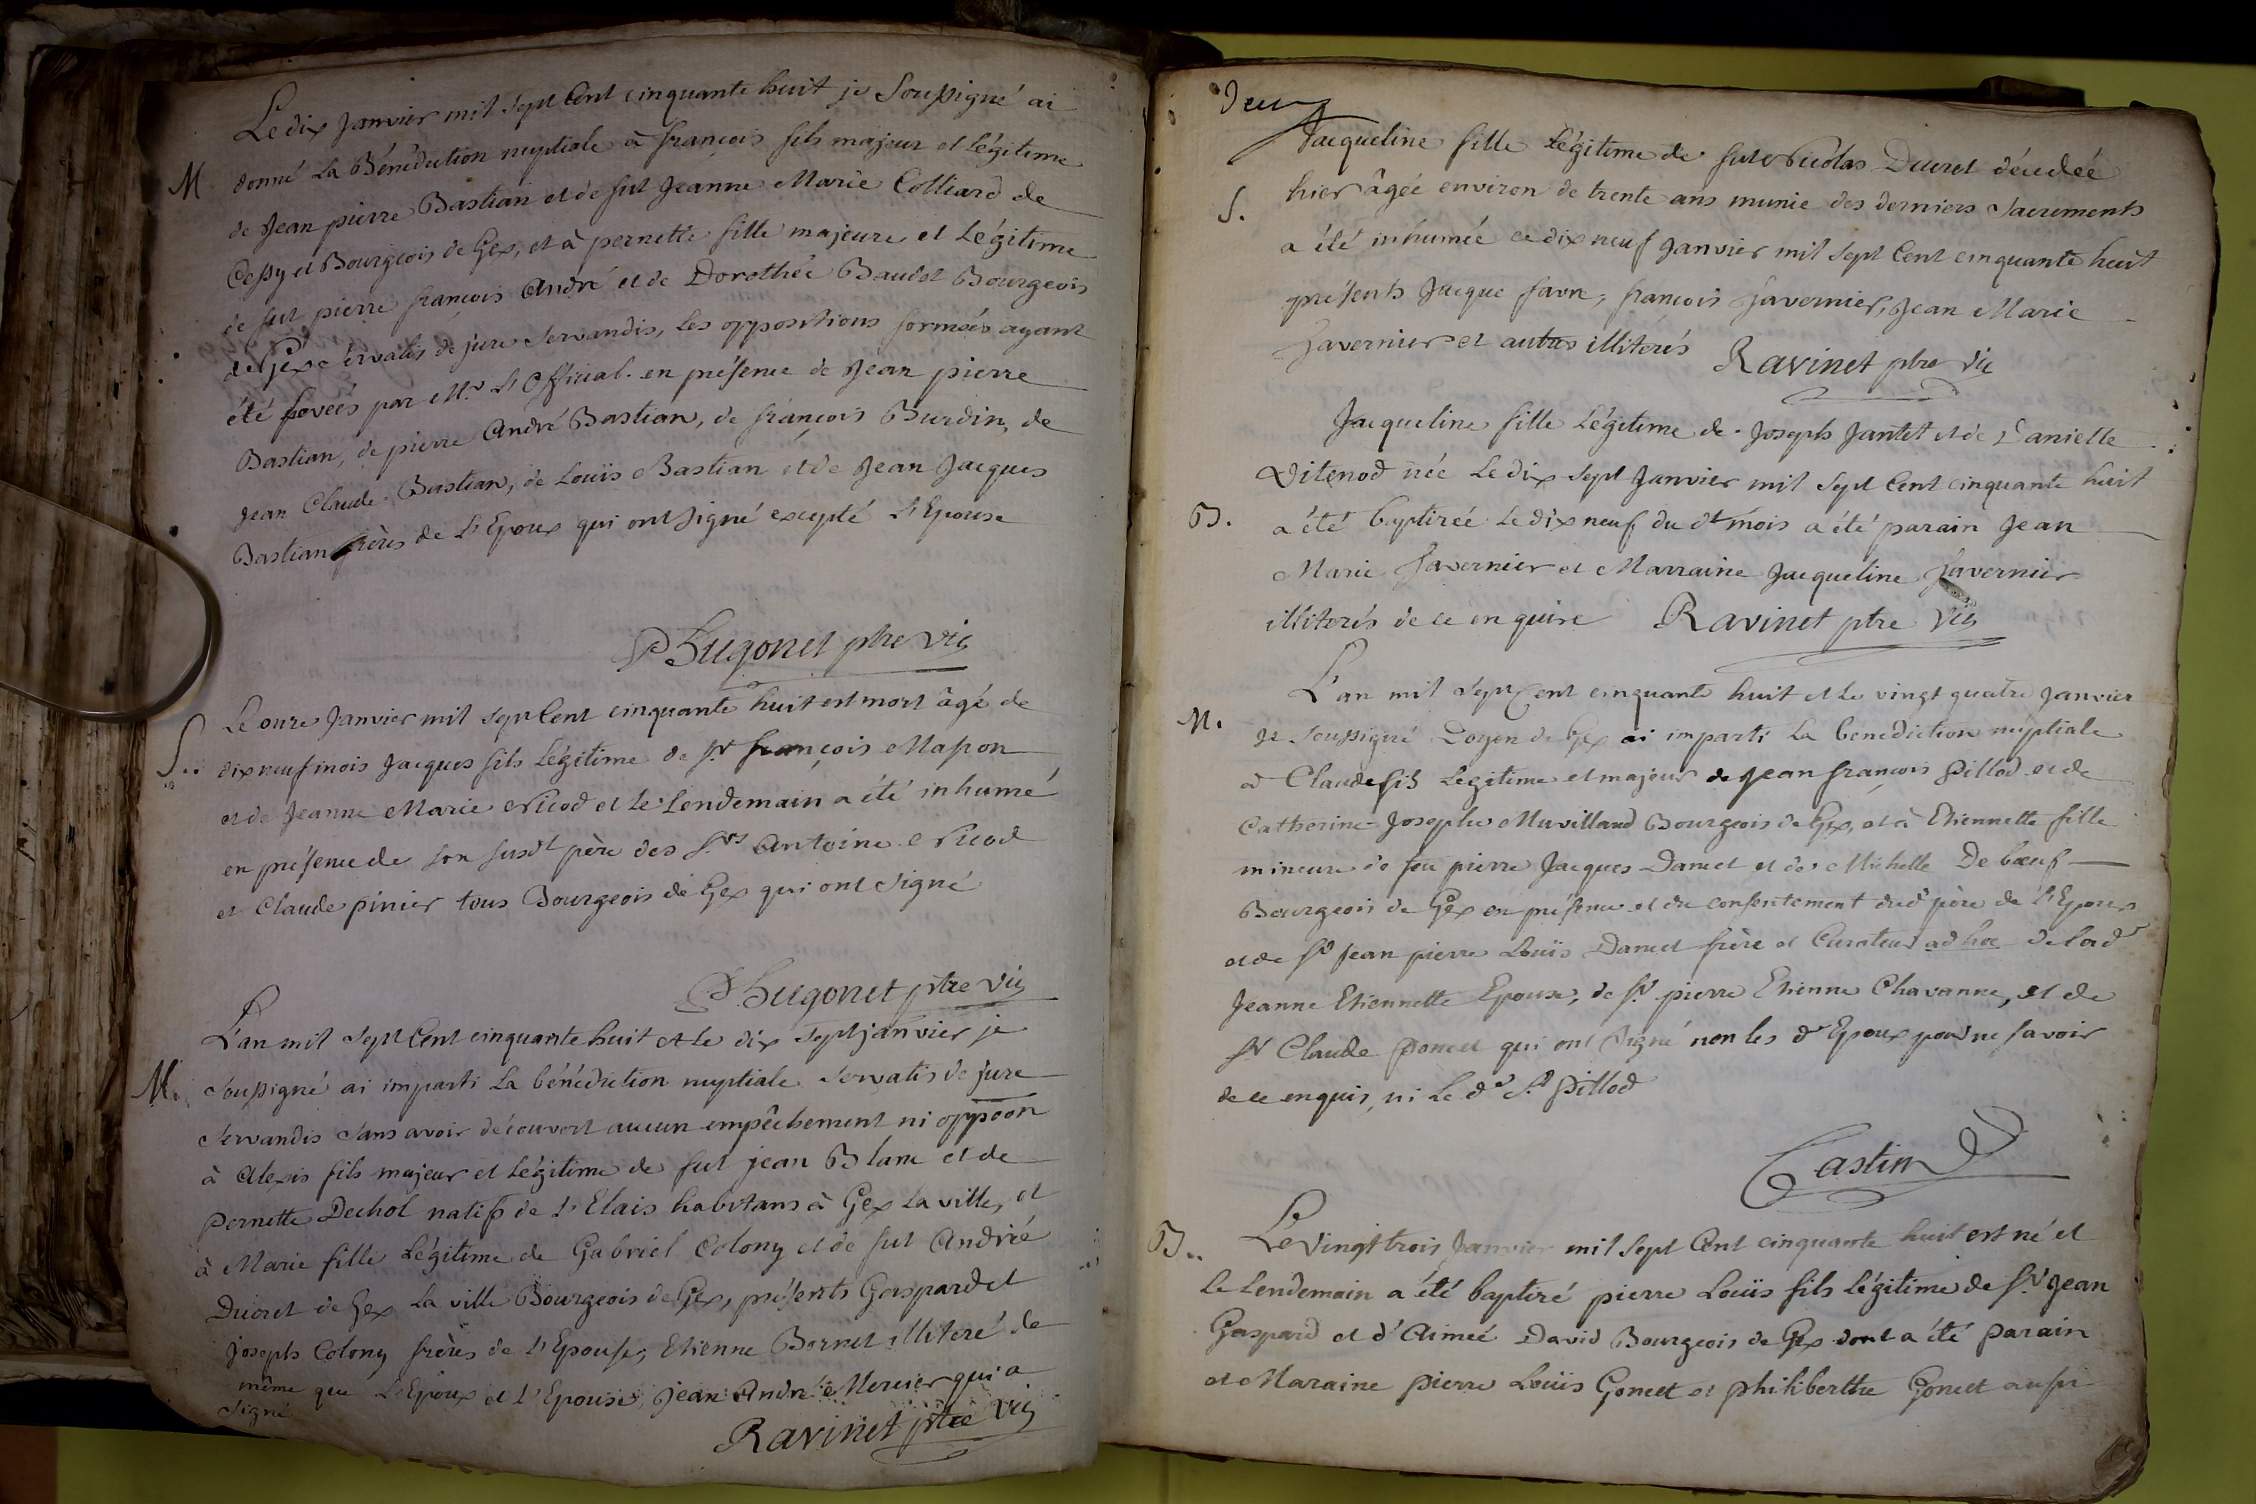 Le dix Janvier mil sept Cent cinquante huit je Soussigné ai
M donné La Bénédiction nuptiale à françois fils majeur et Légitime
de Jean pierre Bastian et de fut Jeanne Marie Colliard de
Cessy et Bourgeois de Gex, et à pernette fille majeure et Légitime
de fut pierre françois André et de Dorothée Baudet Bourgeois
de Gex servatis de jure servandis, les oppositions formées ayant
été par Mr. L'Official. en présence de Jean pierre
Bastian, de pierre André Bastian, de françois Burdin, de
Jean Claude Bastian, de Louis Bastian et de Jean Jacques
Bastian frères de L'Epoux qui ont signé excepté L'Epouse
Hugonet ptre vic
Le onze Janvier mil sept Cent cinquante huit est mort âgé de
S.. dix neuf mois Jacques fils Légitime de Sr. françois Masson
et de Jeanne Marie Nicod et le Lendemain a été inhumé
en présence de son susdt père des Srs Antoine Nicod
et Claude pinier tous Bourgeois de Gex qui ont signé
Hugonet ptre vic
L'an mil sept Cent cinquante huit et le dix sept janvier je
M. soussigné ai imparti La bénédiction nuptiale servatis de jure
servandis sans avoir découvert aucun empêchement ni oppoon
à Alexis fils majeur et Légitime de fut jean Blanc et de
Pernette Dechol natifs de L'Elais habitans à Gex la ville, et
à Marie fille Légitime de Gabriel Colony et de fut Andrié
Ducret de Gex La ville Bourgeois de Gex, présents Gaspard et
Joseph Colony frères de L'Epouse, Etienne Bornet illiteré de
même que L'Epoux et L'Epouse, Jean André Mercier qui a
signé
Ravinet ptre vic
Deux
Jacqueline fille Légitime de fut Nicolas Ducret décedée
S. hier âgée environ de trente ans munie des derniers sacrements
a été inhumée ce dix neuf Janvier mil sept Cent cinquante huit
présents Jacque favre, françois Tavernier, Jean Marie
Tavernier et autres illiterés Ravinet ptre vic
Jacqueline fille Légitime de Joseph Jantet et de Danielle
Vitenod née Le dix sept Janvier mil sept Cent cinquante huit
B. a été baptizée Le dix neuf du dt mois a été parain Jean
Marie Tavernier et Marraine Jacqueline Tavernier
illiterés de ce enquise Ravinet ptre vic
L'an mil sept Cent cinquante huit et le vingt quatre Janvier
M. je soussigné Doyen de Gex ai imparti La benediction nuptiale
à Claude fils Legitime et majeur de Jean françois Pillod et de
Catherine Josephe Muvilland Bourgeois de Gex, et à Etiennette fille
mineure de feu pierre Jacques Danet et de Michelle De bœuf
Bourgeois de Gex en présence et du consentement dud père de L'Epoux
et de Sr Jean pierre Louïs Danet frère et Curateur ad hoc de lad
Jeanne Etiennette Epouse, de Sr. pierre Etienne Chavanne, et de
Sr Claude Poncet qui ont signé non les d Epoux pour ne savoir
de ce enquis, ni Le d Sr Pillod
Castin
B.. Le Vingt trois Janvier mil sept Cent cinquante huit est né et
le Lendemain a été baptizé pierre Louïs fils Légitime de Sr. Jean
Gaspard et d'Aimée David Bourgeois de Gex dont a été Parain
et Maraine pierre Louïs Gonet et philiberthe Gonet aussi